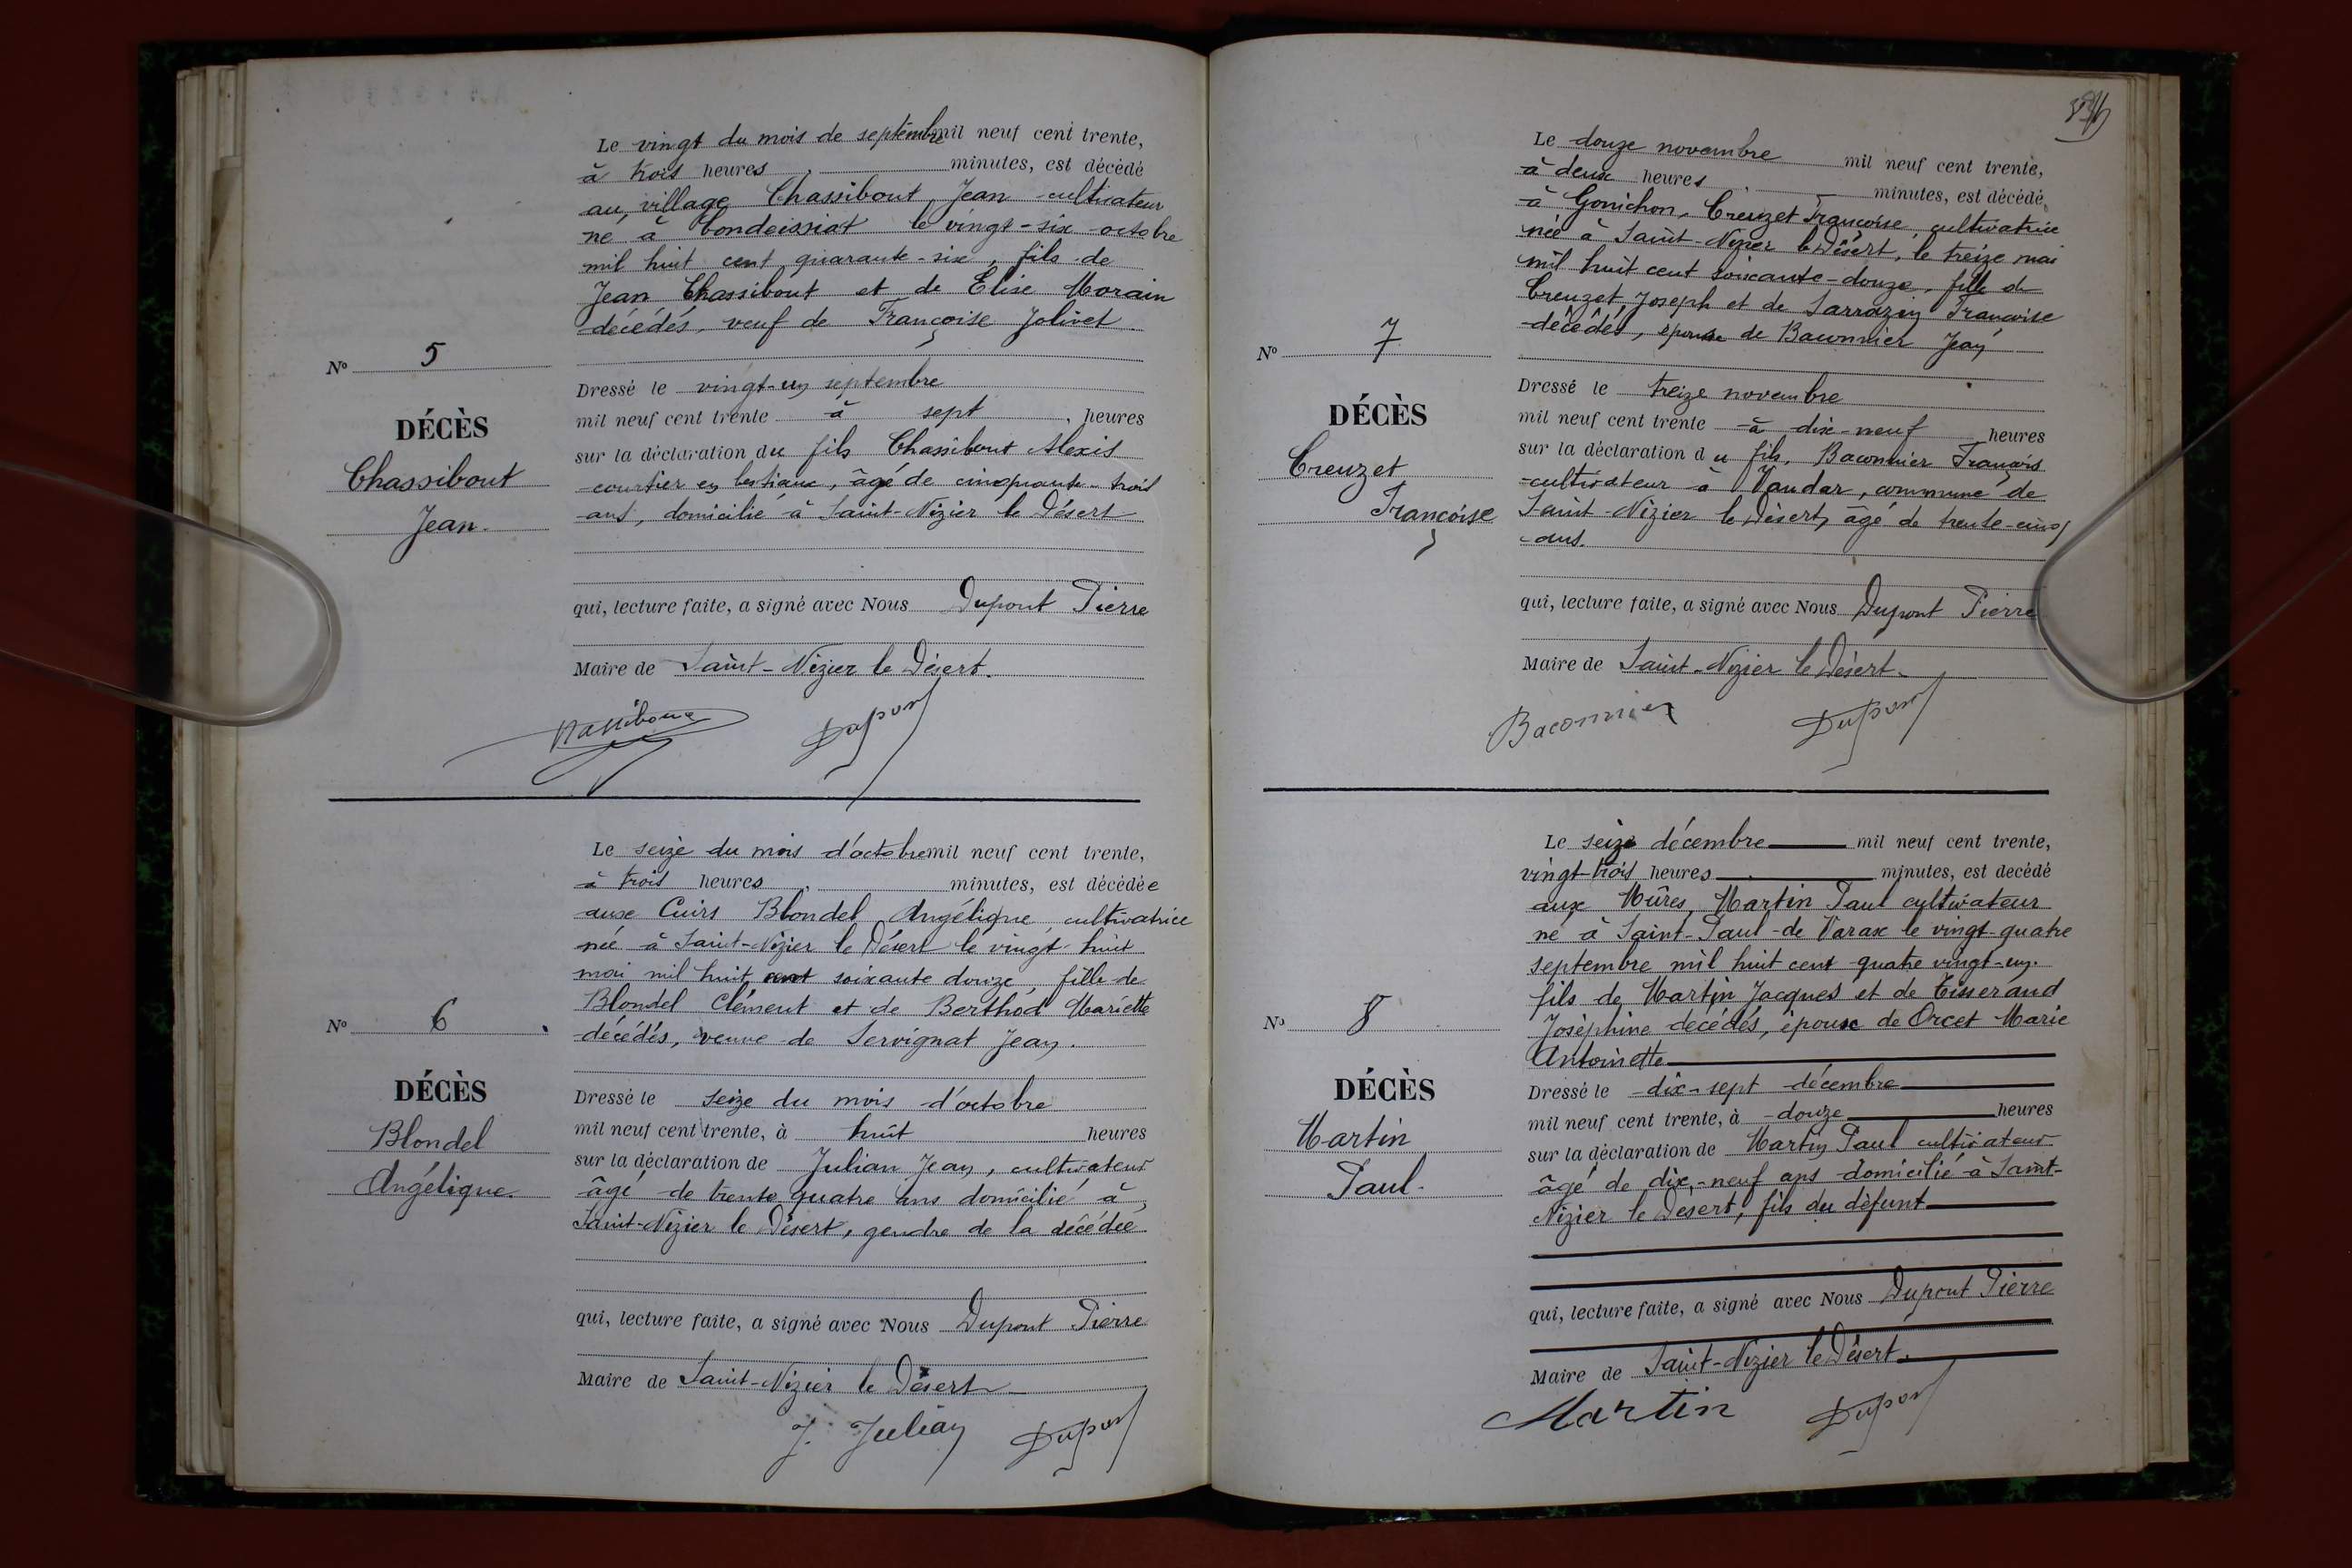 Le vingt du mois de septembre mil neuf cent trente,
à trois heures minutes, est décédé
au village Chassibout Jean cultivateur
né à Condeissiat le vingt-six octobre
mil huit cent quarante-six, fils de
Jean Chassibout et de Elise Morain
décédés, veuf de Françoise Jolivet
No 5
DÉCÈS
Chassibout
Jean.
Dressé le vingt-un septembre
mil neuf cent trente à sept heures
sur la déclaration du fils Chassibout Alexis
courtier en bestiaux, âgé de cinquante-trois
ans, domicilié à Saint-Nizier le Désert
qui, lecture faite, a signé avec Nous Dupont Pierre
Maire de Saint-Nizier le Désert.
Dupont
Le seize du mois d'octobre mil neuf cent trente,
à trois heures minutes, est décédée
aux Cuirs Blondel Angélique, cultivatrice
née à Saint-Nizier le Désert le vingt-huit
mai mil huit cent soixante douze, fille de
Blondel Clément et de Berthod Mariette
décédés, veuve de Servignat Jean.
No 6
DÉCÈS
Blondel
Angélique.
Dressé le seize du mois d'octobre
mil neuf cent trente, à huit heures
sur la déclaration de Julian Jean, cultivateur
âgé de trente quatre ans domicilié à
Saint-Nizier le Désert, gendre de la décédée
qui, lecture faite, a signé avec Nous Dupont Pierre
Maire de Saint-Nizier le Désert
J. Julian Dupont
Le douze novembre mil neuf cent trente,
à deux heures minutes, est décédé
à Gonichon, Creuzet Françoise cultivatrice
née à Saint-Nizier le Désert, le treize mai
mil huit cent soixante-douze, fille de
Creuzet Joseph et de Sarrazin Françoise
décédés, épouse de Baconnier Jean
No 7
DÉCÈS
Creuzet
Françoise
Dressé le treize novembre
mil neuf cent trente à dix-neuf heures
sur la déclaration du fils, Baconnier François
cultivateur à Vandar, commune de
Saint-Nizier le Désert, âgé de trente-cinq
ans.
qui, lecture faite, a signé avec Nous Dupont Pierre
Maire de Saint-Nizier le Désert
Baconnier Dupont
Le seize décembre mil neuf cent trente,
vingt-trois heures minutes, est décédé
aux Mûres, Martin Paul cultivateur
né à Saint-Paul-de Varax le vingt-quatre
septembre mil huit cent quatre vingt-un.
fils de Martin Jacques et de Tisserand
Joséphine décédés, époux de Orcet Marie
Antoinette
No 8
DÉCÈS
Martin
Paul.
Dressé le dix-sept décembre
mil neuf cent trente, à douze heures
sur la déclaration de Martin Paul cultivateur
âgé de dix-neuf ans domicilié à Saint-
Nizier le Désert, fils du défunt
qui, lecture faite, a signé avec Nous Dupont Pierre
Maire de Saint-Nizier le Désert.
Martin Dupont